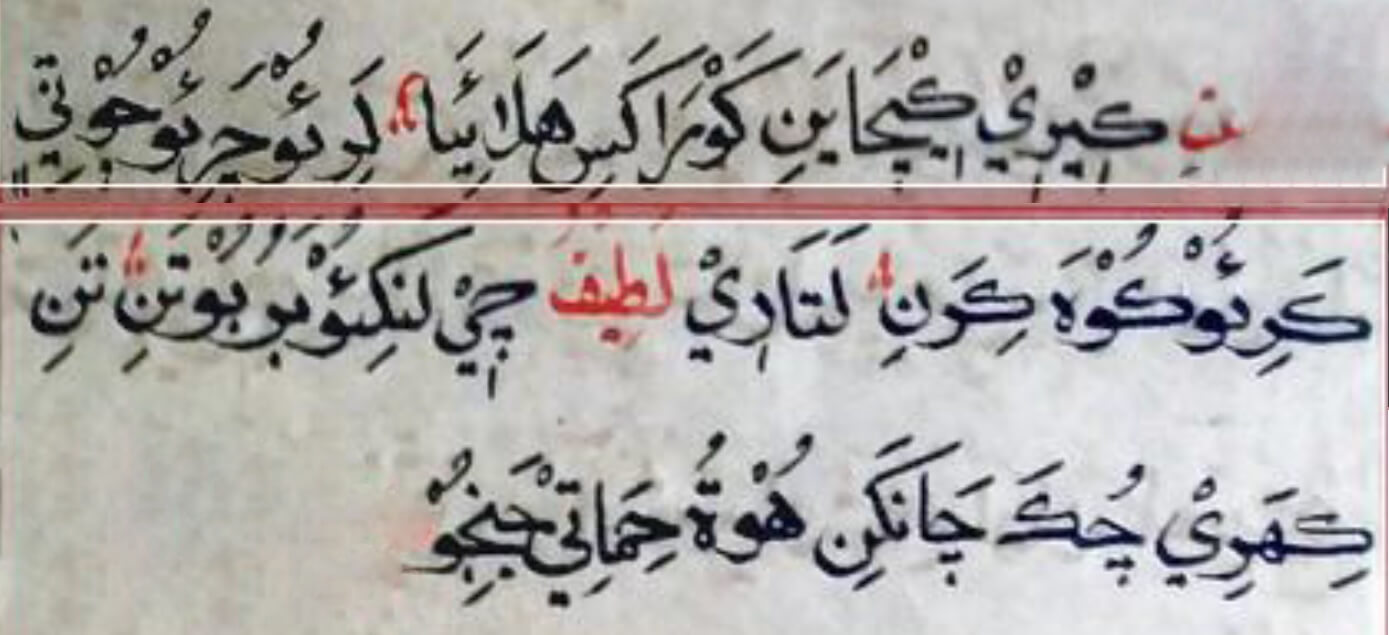 ن كِيْرِيْ كِيْچَايَنِ كَوْرَا كَسِ هَلَائِيَا لَرِ ئُوْ جَرِ ئُوْ جُوْتِيْ
كَرِ ئُوْ كُوْهَ كِرَنِ لَتَارِيْ لَطِيْف چِيْ لنكِئُوْ بَرُ بُوْتَنِ تَنِ
كِهَرِيْ چُكَ چَانكَنِ هُوْةُ حِمَاتِيْ جَنِجُوْ